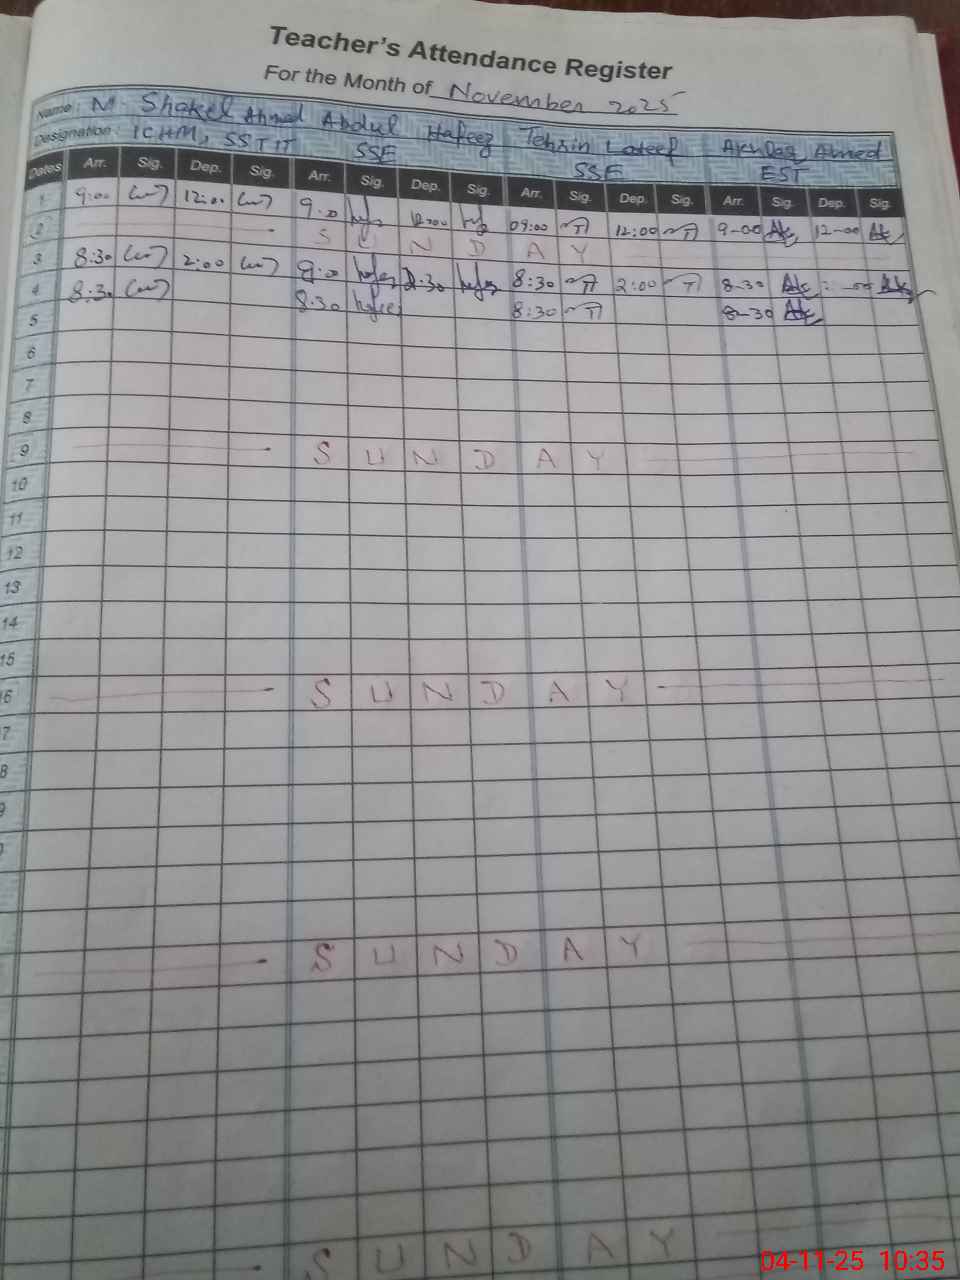 Teacher's Attendance Register
For the Month of November 2025
Name: M. Shakeel Ahmed Abdul Hafeez Tehsin Lateef Ahmed
Designation: ICHM, SSTIT SSE SSE EST
Dates Arr. Sig. Dep. Sig. Arr. Sig. Dep. Sig. Arr. Sig. Dep. Sig. Arr. Sig. Dep. Sig.
1 9:00 12:00 9:00 12:00 09:00 12:00 9-00 12-00
2 SUNDAY
3 8:30 2:00 9:00 2:30 8:30 2:00 8-30
4 8:30 8:30 8:30 8-30
5
6
7
8
9 SUNDAY
10
11
12
13
14
15
6 SUNDAY
7
8
9
SUNDAY
SUNDAY
04-11-25 10:35